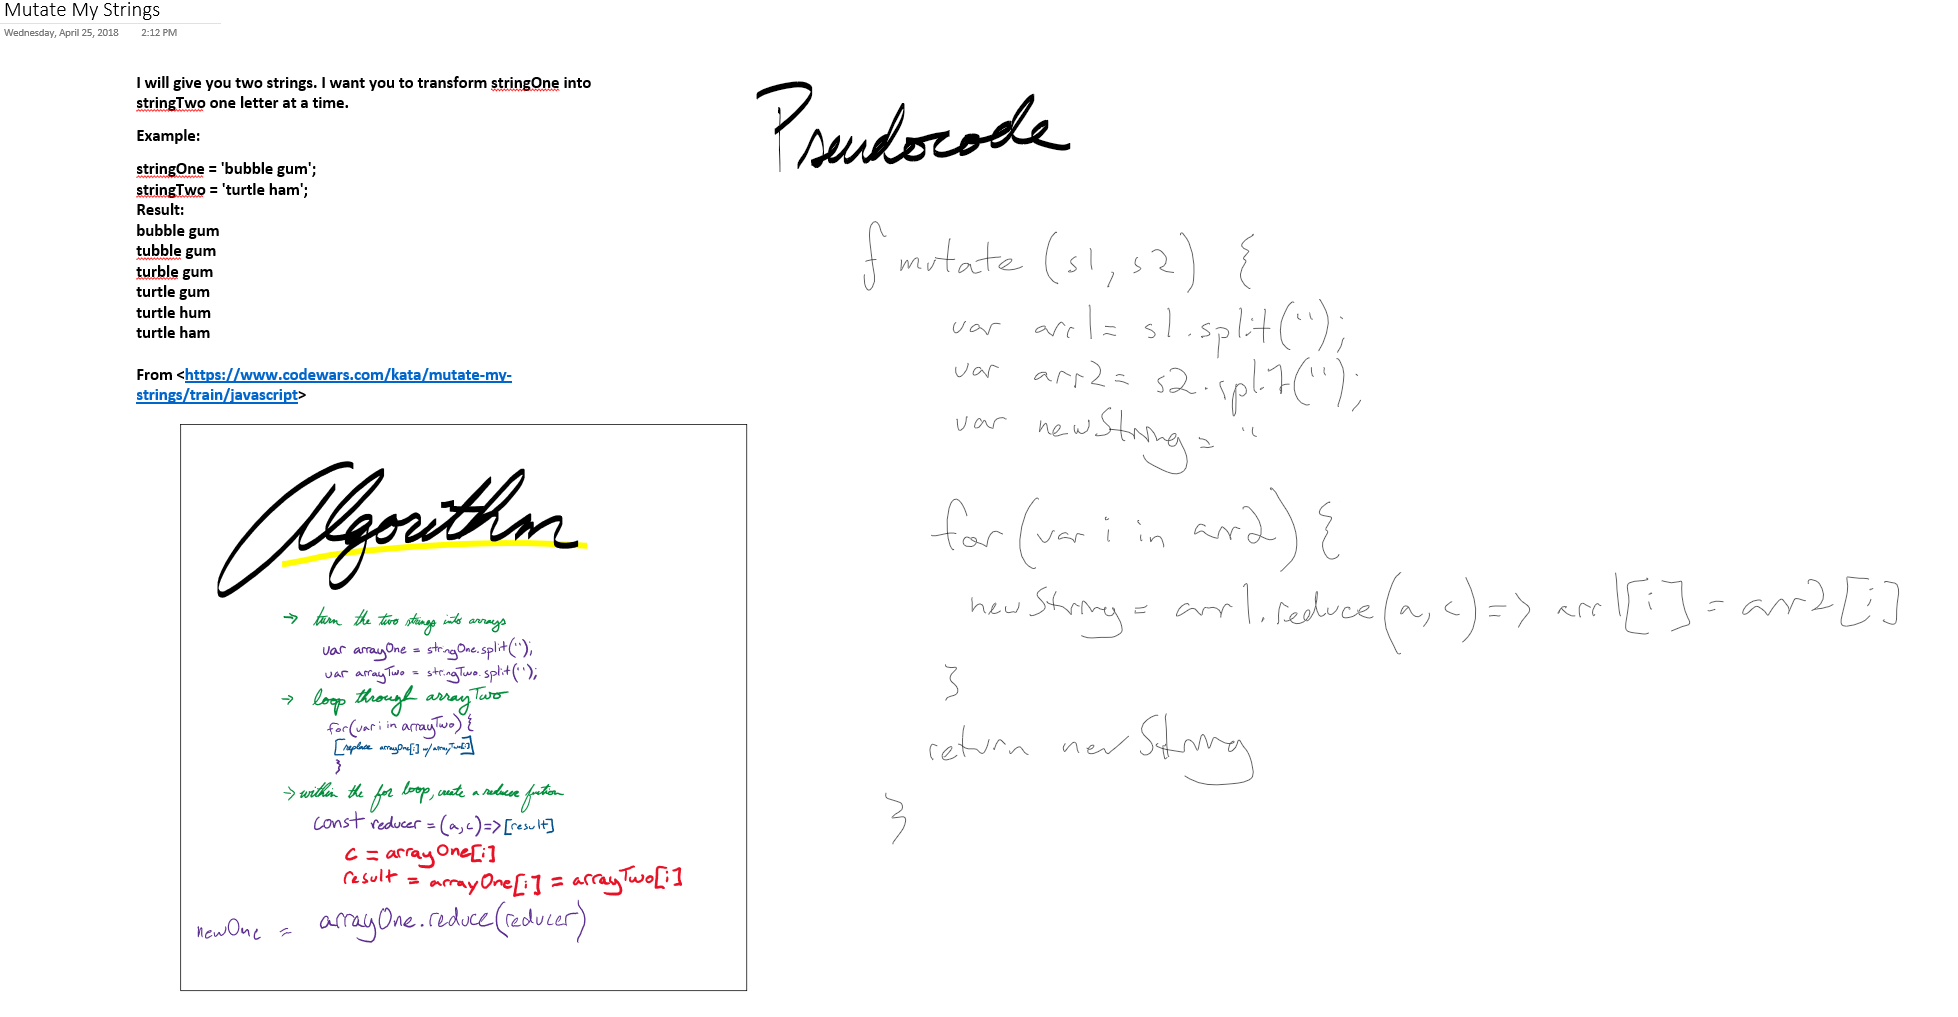 Mutate My Strings
Wednesday, April 25, 2018 2:12 PM
I will give you two strings. I want you to transform stringOne into
stringTwo one letter at a time.
Example:
stringOne = 'bubble gum';
stringTwo = 'turtle ham';
Result:
bubble gum
tubble gum
turble gum
turtle gum
turtle hum
turtle ham
From <https://www.codewars.com/kata/mutate-my-
strings/train/javascript>
Algorithm
→ turn the two strings into arrays
var arrayOne = stringOne.split('');
var arrayTwo = stringTwo.split('');
→ loop through arrayTwo
for(var i in arrayTwo) {
[replace arrayOne[i] w/ arrayTwo[i]]
}
→ within the for loop, create a reducer function
const reducer = (a,c) => [result]
c = arrayOne[i]
result = arrayOne[i] = arrayTwo[i]
newOne = arrayOne.reduce(reducer)
Pseudocode
f mutate (s1, s2) {
var arr1 = s1.split('');
var arr2 = s2.split('');
var newString = ''
for (var i in arr2) {
newString = arr1.reduce(a,c) => arr1[i] = arr2[i]
}
return newString
}